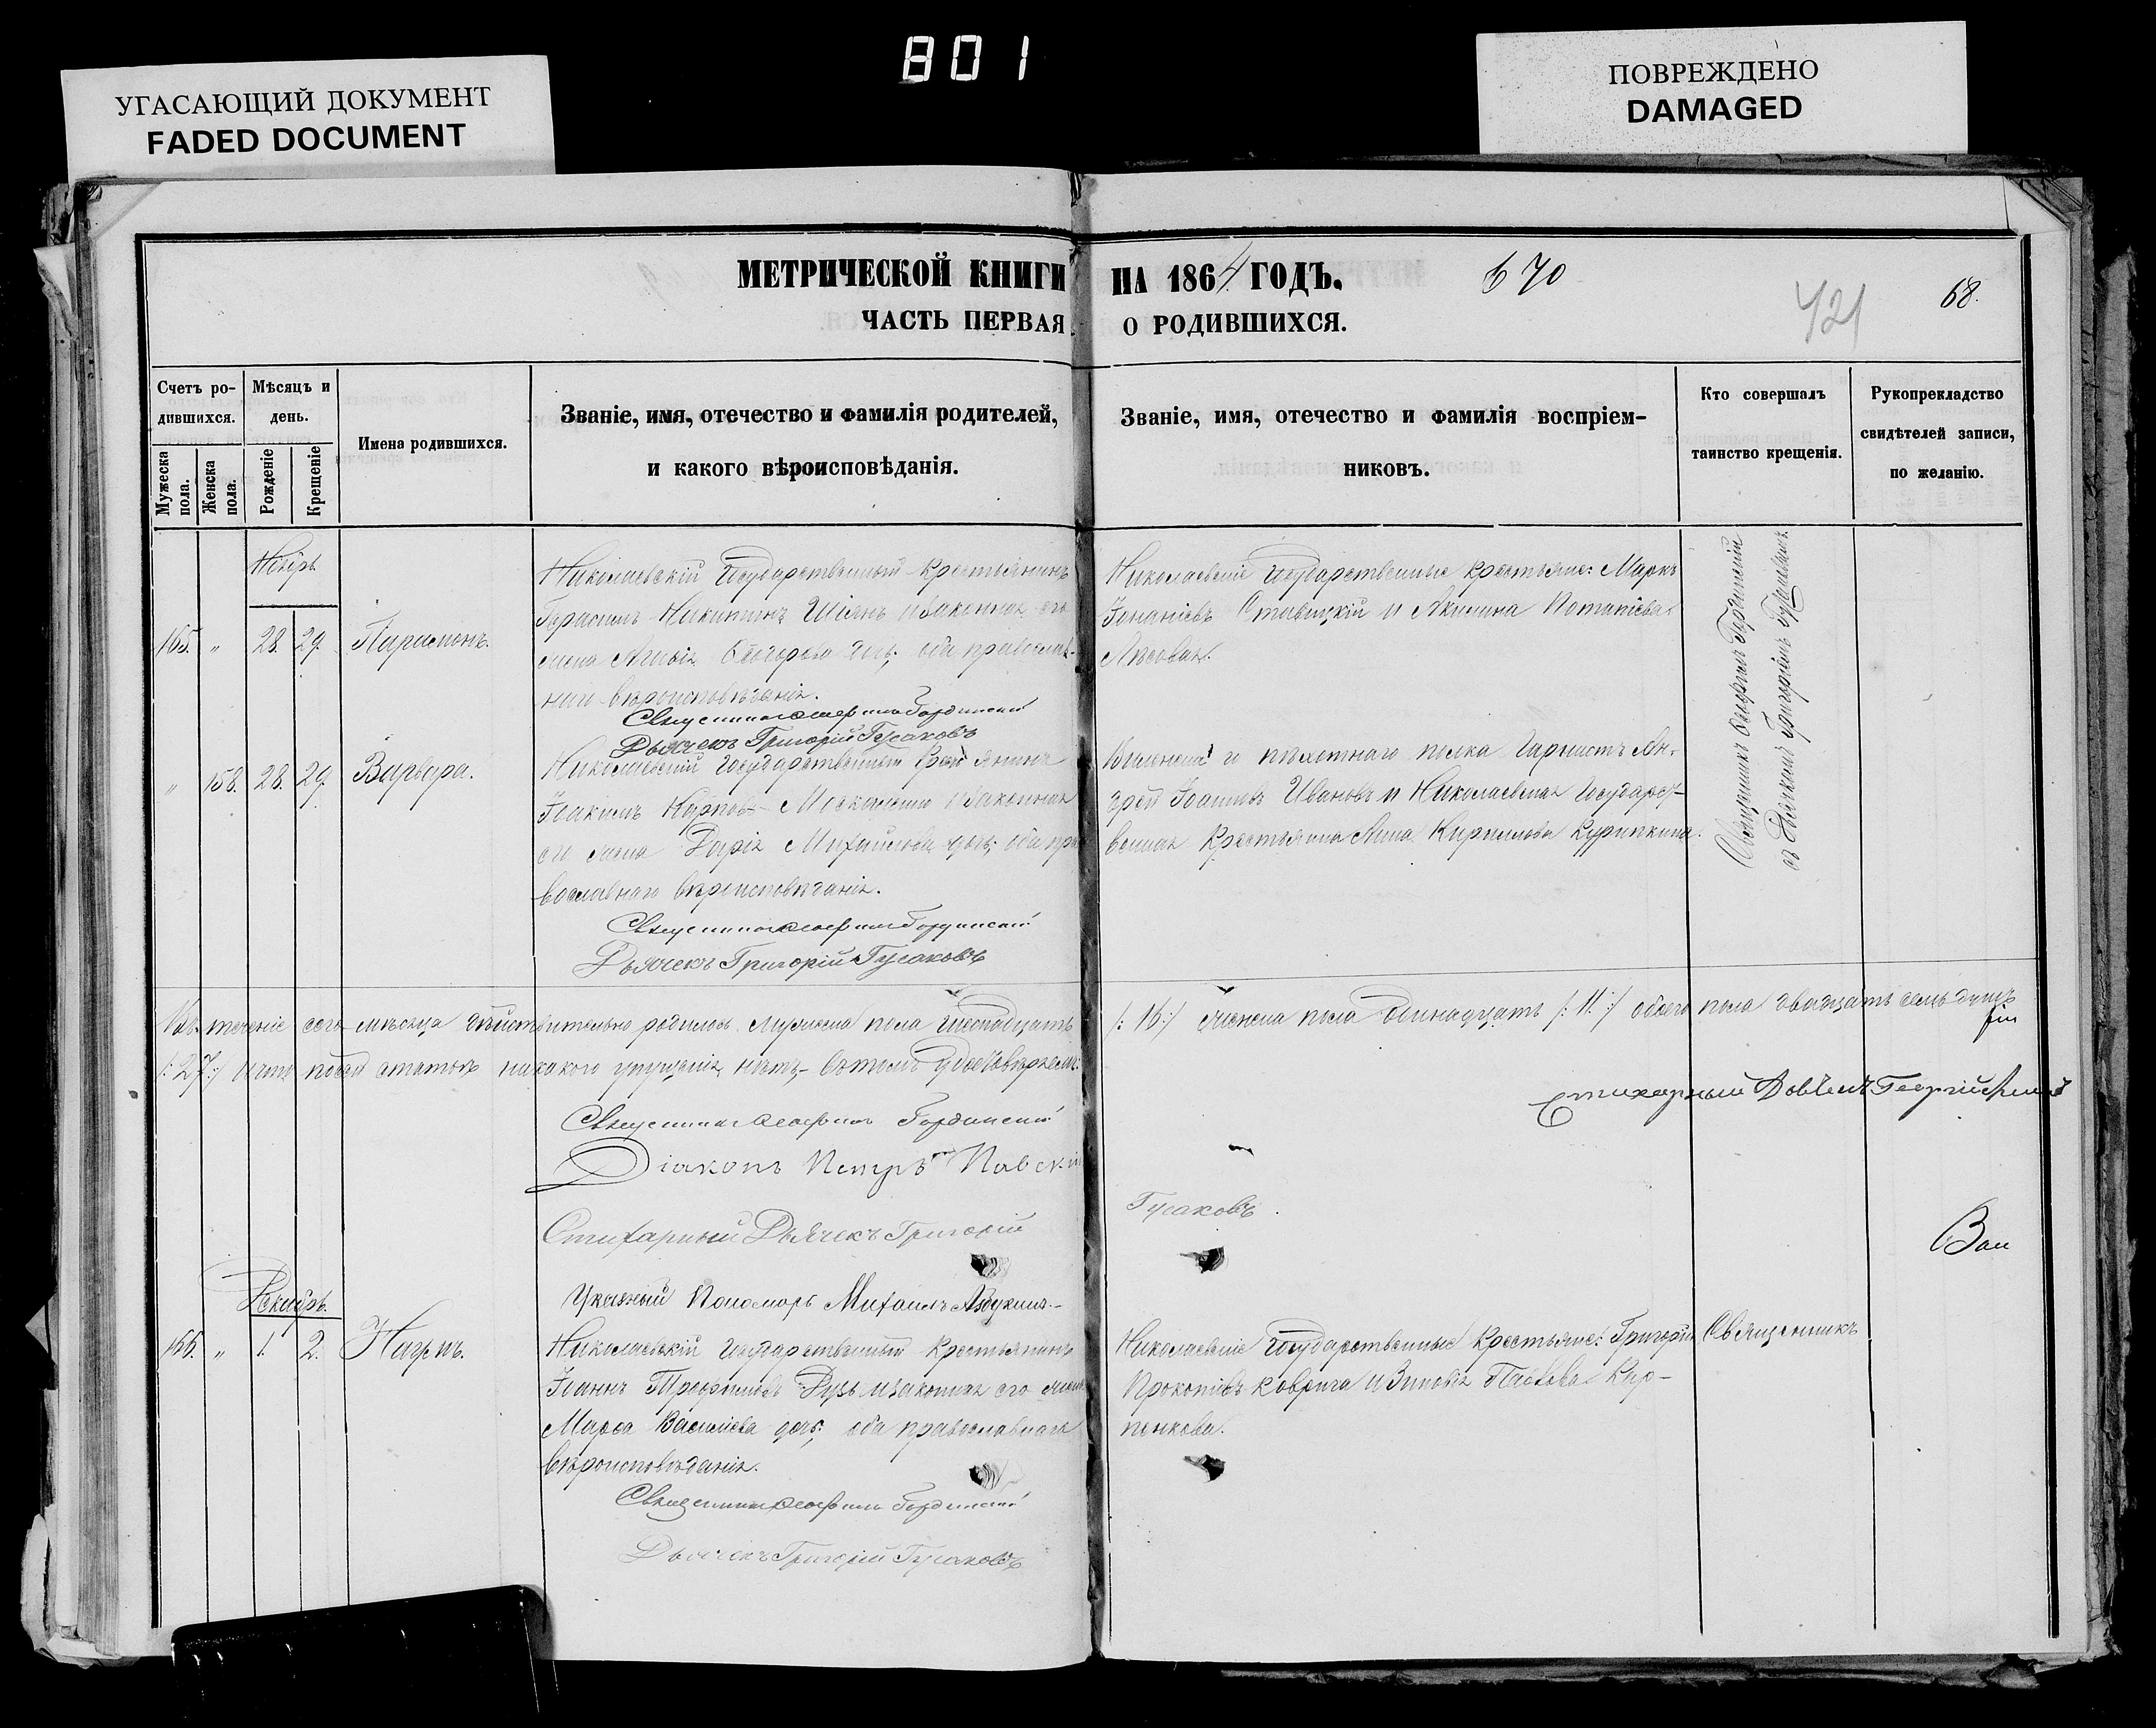 801
УГАСАЮЩИЙ ДОКУМЕНТ
FADED DOCUMENT
ПОВРЕЖДЕНО
DAMAGED
МЕТРИЧЕСКОЙ КНИГИ НА 1864 ГОДЪ.
670
421
68.
ЧАСТЬ ПЕРВАЯ О РОДИВШИХСЯ.
Счетъ ро-
дившихся.
Мужеска пола.
Женска пола.
Мѣсяцъ и
день.
Рожденіе
Крещеніе
Имена родившихся.
Званіе, имя, отечество и фамилія родителей,
и какого вѣроисповѣданія.
Званіе, имя, отечество и фамилія воспріем-
никовъ.
Кто совершалъ
таинство крещенія.
Рукопрекладство
свидѣтелей записи,
по желанію.
Ноябрь
165. " 28. 29. Парамонъ.
Николаевскій Государственный крестьянинъ
Герасимъ Никитинъ Шіянъ и законная его
жена Агафія Ѳеодорова дчь; оба православ-
наго вѣроисповѣданія.
Священникъ Ѳеофилъ Бординскій
Дьячекъ Григорій Гусаковъ
Николаевскіе Государственные крестьяне: Маркъ
Ананіевъ Ставицкій и Акилина Потапіева
Лѣсовая.
" 158. 28. 29. Варвара.
Николаевскій Государственный крестьянинъ
Іоакимъ Карповъ и законная
его жена Дарія Михайлова дчь; оба пра
вославнаго вѣроисповѣданія.
Священникъ Ѳеофилъ Бординскій
Дьячекъ Григорій Гусаковъ
Виленскаго пѣхотнаго полка Гарнистъ Ан-
дрей Іоанновъ Ивановъ и Николаевская Государст-
венная Крестьянка Анна Кириллова Курипкина.
Священникъ Ѳеофилъ Бординскій
съ Дьячкомъ Григоріемъ Гусаковымъ
въ теченіе сего мѣсяца дѣйствительно родилось мужеска пола шеснадцать /:16:/ женска пола одинадцать /:11:/ обоего пола двадцать семь душъ
/:27:/ и что по сей статьѣ никакого упущенія нѣтъ, въ томъ удостовѣряемъ:
Священникъ Ѳеофилъ Бординскій
Діаконъ Петръ Павскій
Стихарный Дьячекъ Григорій Гусаковъ.
Стихарный Дьячекъ Георгій
Указный Пономарь Михаилъ
Декабрь.
166. " 1. 2. Наумъ.
Николаевскій Государственный Крестьянинъ
Іоаннъ Трофимовъ Дузь и законная его жена
Марѳа Василіева дчь; оба православнаго
вѣроисповѣданія.
Священникъ Ѳеофилъ Бординскій
Дьячекъ Григорій Гусаковъ
Николаевскіе Государственные Крестьяне: Григорій
Прокопіевъ Коврига и Зиновія Павлова Кар-
пенкова.
Священникъ